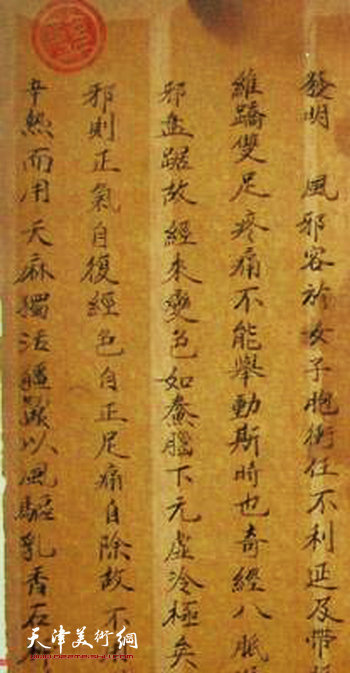 發明 風邪客於女子胞衝任不利延及帶
維蹻雙足疼痛不能舉動斯時也奇經八脈
邪盤踞故經來變色如養腦下元虛冷極矣
邪則正氣自復經色自正足痛自除故不
辛熱而用天麻獨活殭蠶以風驅乳香石
天津美術網